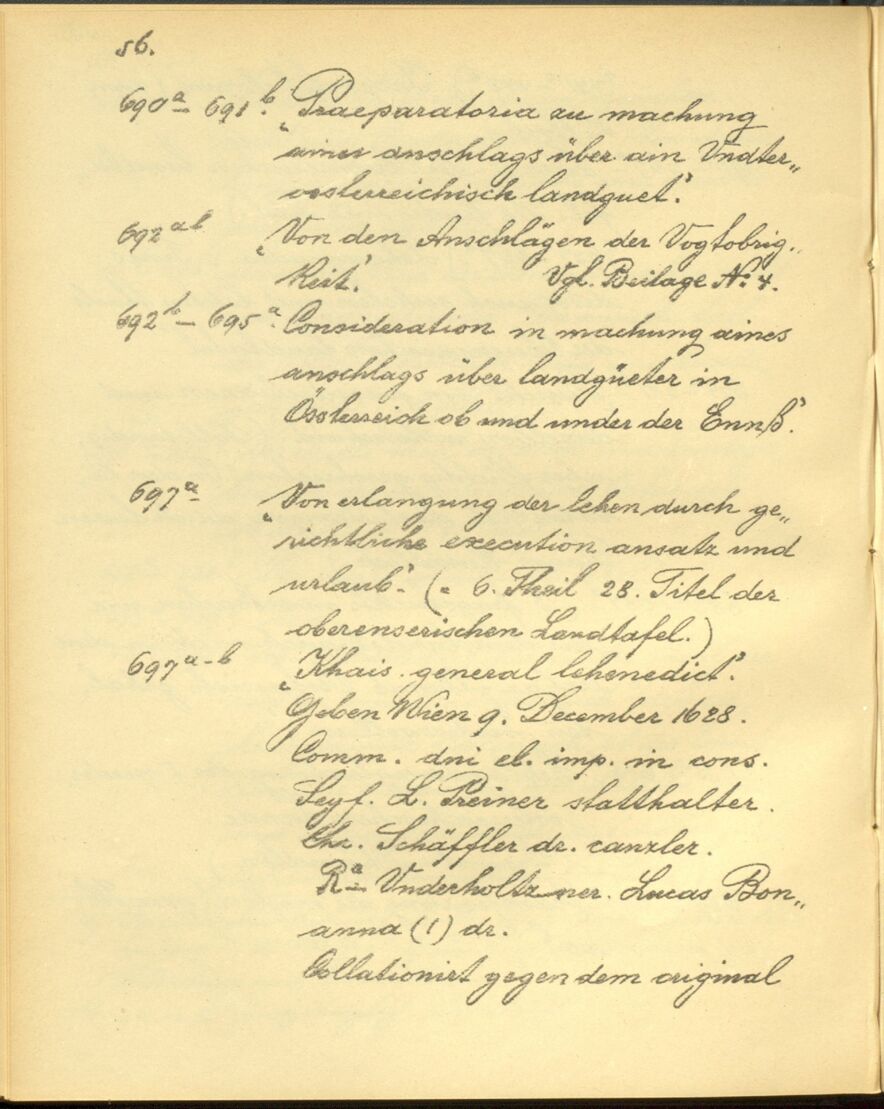 56.
690a – 691b. „Praeparatoria zu machung
eines anschlags über ain Vndter„
oesterreichisch landguet“.
692ab „Von den Anschlägen der Vogtobrig„
keit“. Vgl. Beilage No. 4.
692b – 695a. Consideration in machung aines
anschlags über landgüeter in
Össterreich ob und under der Ennß“.
697a „Von erlangung der lehen durch ge„
richtliche execution ansatz und
urlaub“. (= 6. Theil 28. Titel der
oberenserischen Landtafel.)
697a-b „Khais. general lehenedict“.
Geben Wien 9. December 1628.
Comm. dni el. imp. in cons.
Seyf. L. Preiner statthalter.
Chr. Schäffler dr. canzler.
Ra Vnderholtzner. Lucas Bon„
anna (!) dr.
Collationirt gegen dem original